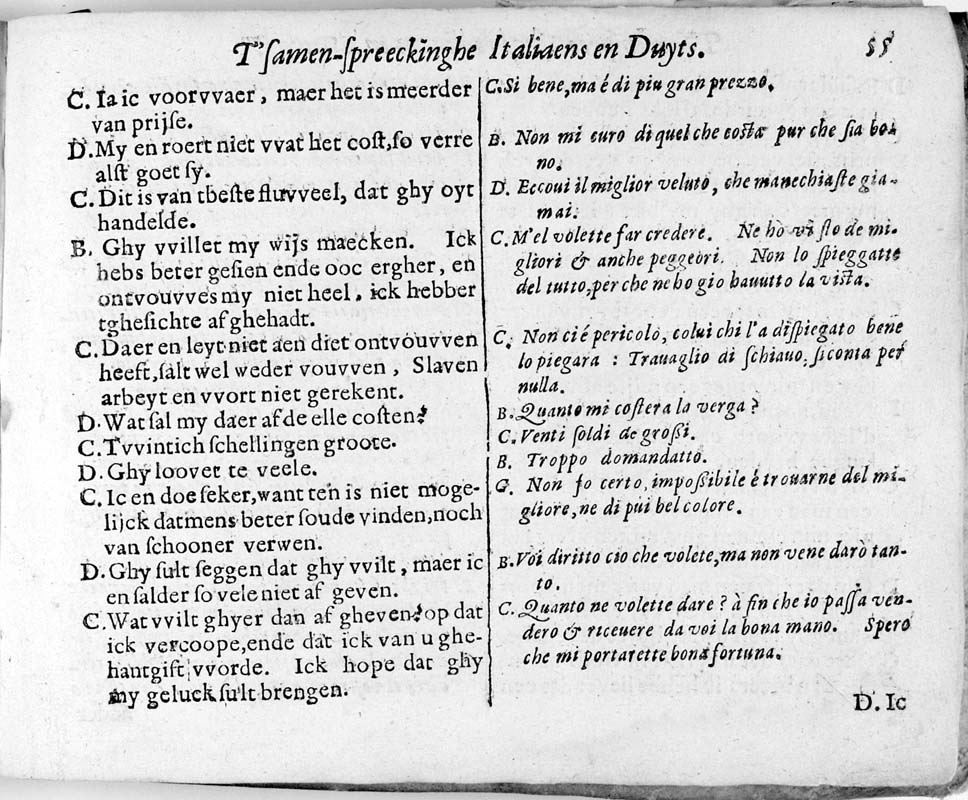 T'ſamen-ſpreeckinghe Italiaens en Duyts. 55
C. Ia ic voorvvaer, maer het is meerder
van prijſe.
D. My en roert niet vvat het coſt, ſo verre
alſt goet ſy.
C. Dit is van tbeſte fluvveel, dat ghy oyt
handelde.
B. Ghy vvillet my wijs maecken. Ick
hebs beter geſien ende ooc ergher, en
ontvouvves my niet heel, ick hebber
tgheſichte af ghehadt.
C. Daer en leyt niet aen diet ontvouvven
heeft, ſalt wel weder vouvven, Slaven
arbeyt en vvort niet gerekent.
D. Wat ſal my daer af de elle coſten?
C. Tvvintich ſchellingen groote.
D. Ghy loovet te veele.
C. Ic en doe ſeker, want ten is niet moge-
lijck datmens beter ſoude vinden, noch
van ſchooner verwen.
D. Ghy ſult ſeggen dat ghy vvilt, maer ic
en ſalder ſo vele niet af geven.
C. Wat vvilt ghyer dan af gheven? op dat
ick vercoope, ende dat ick van u ghe-
hantgift vvorde. Ick hope dat ghy
my geluck ſult brengen.
C. Si bene, ma é di piu gran prezzo.
B. Non mi curo di quel che coſta pur che ſia bo-
no.
D. Eccoui il miglior veluto, che manechiaſte gia-
mai.
C. M'el volette far credere. Ne ho viſto de mi-
gliori & anche peggeori. Non lo ſpieggatte
del tutto, per che ne ho gio hauutto la viſta.
C. Non ci é pericolo, colui chi l'a diſpiegato bene
lo piegara : Trauaglio di ſchiauo, ſi conta per
nulla.
B. Quanto mi coſtera la verga ?
C. Venti ſoldi de groſſi.
B. Troppo domandatto.
G. Non fo certo, impoſſibile é trouarne del mi-
gliore, ne di pui bel colore.
B. Voi diritto cio che volete, ma non vene daro tan-
to.
C. Quanto ne volette dare ? à fin che io paſſa ven-
dero & riceuere da voi la bona mano. Spero
che mi portarette bona fortuna.
D. Ic